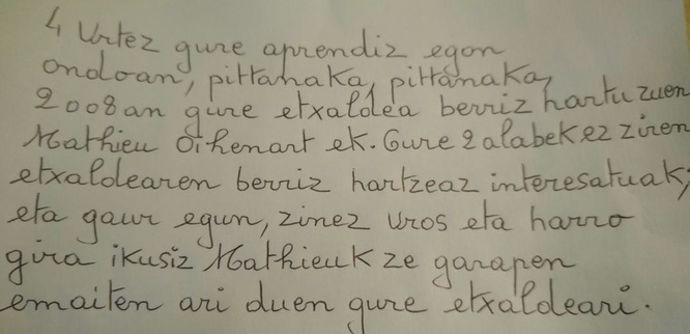 4 Urtez gure aprendiz egon
ondoan, pittanaka, pittanaka,
2008an gure etxaldea berriz hartu zuen
Mathieu Oihenart ek. Gure 2 alabek ez ziren
etxaldearen berriz hartzeaz interesatuak;
eta gaur egun, zinez uros eta harro
gira ikusiz Mathieuk ze garapen
emaiten ari duen gure etxaldeari.